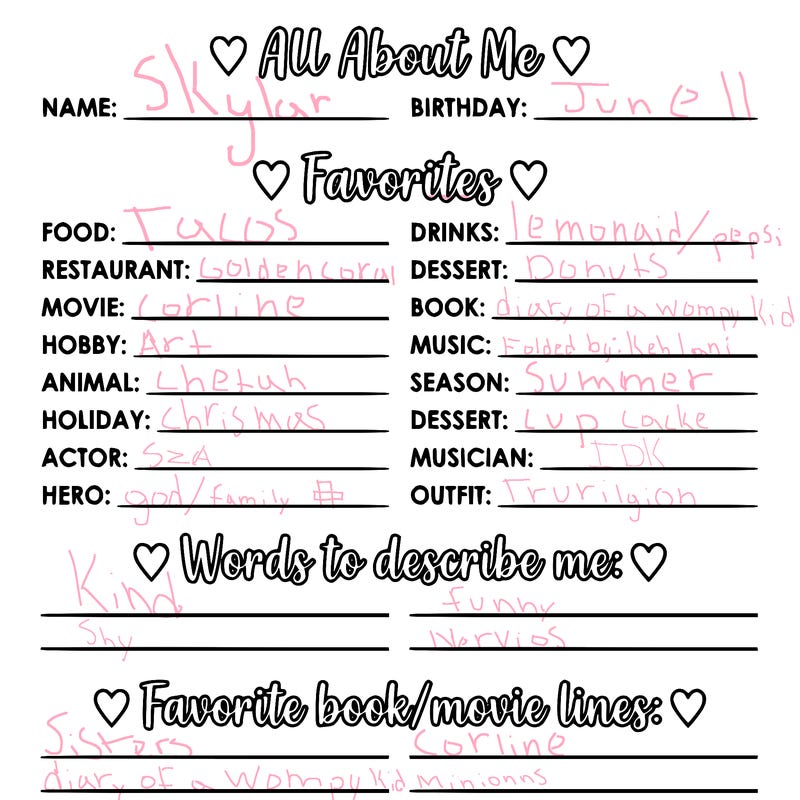 All About Me
NAME: Skylar BIRTHDAY: June 11
Favorites
FOOD: Tacos DRINKS: lemonaid/pepsi
RESTAURANT: Goldencoral DESSERT: Donuts
MOVIE: Corline BOOK: diary of a wompy kid
HOBBY: Art MUSIC: Folded by: Kehlani
ANIMAL: Chetuh SEASON: Summer
HOLIDAY: Chrismas DESSERT: Cup Cacke
ACTOR: SZA MUSICIAN: IDK
HERO: god/family OUTFIT: Trurilgion
Words to describe me:
Kind funny
Shy Nervios
Favorite book/movie lines:
Sisters Corline
diary of a Wompy Kid minionns